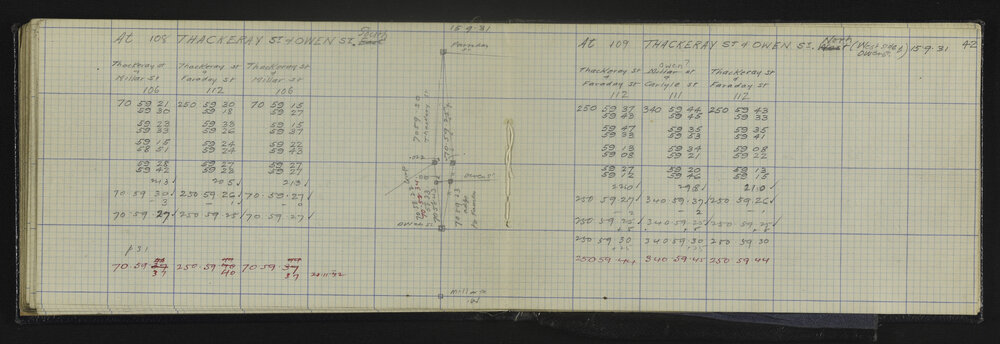 15.9.31
At 108 THACKERAY ST & OWEN ST. North East
Thackeray St & Millar St 106
Thackeray St & Faraday St 112
Thackeray St & Millar St 106
70 59 21 250 59 30 70 59 15
59 30 59 18 59 27
59 23 59 33 59 15
59 33 59 26 59 37
59 15 59 24 59 22
58 51 59 24 59 43
59 28 59 27 59 27
59 42 59 23 59 27
213 205 213
70.59.30 250.59.26 70.59.27
- 3 - 1
70.59.27 250.59.25 70.59.27
+31
70.59 37 250.59 40 70.59 37 20.11.32
Faraday St
70 59 30
Thackeray St
70.59.25
.022
Owen St
70 59 13
adj to Faraday
Owen St
Millar St
At 109 THACKERAY ST & OWEN ST. North (West side of Owen St.) 15.9.31 42
Thackeray St & Faraday St 112
Owen? Millar St & Carlyle St 111
Thackeray St & Faraday St 112
250 59 37 340 59 44 250 59 43
59 43 59 45 59 33
59 47 59 35 59 35
59 33 59 53 59 41
59 13 59 34 59 08
59 08 59 21 59 22
59 27 59 20 59 13
59 12 59 46 59 15
220 298 210
250 59.27 340.59.37 250 59.26
- 2 - 2 - 1
250 59.25 340.59.35 250 59.25
+5 +5 +5
250 59 30 340 59 30 250 59 30
250 59.44 340 59.45 250 59.44